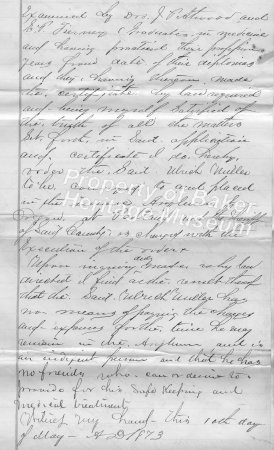 Examined by Drs. J. Pittwood and
Tierney Graduates in medicine
and having practiced their profession
years from date of their diplomas
and they having made
the certificate by law required
and being myself satisfied of
the truth of all the matters
set forth in said application
and certificate I do hereby
order the said Ulrich Muller
to be and placed
in the
Oregon at
of said County is charged with the
execution of this order
Upon inquiry duly made as by law
directed I find as the result thereof
that the said Ulrich Muller has
no means of paying the charges
and expenses for the time he may
remain in the Asylum and is
an indigent person and that he has
no friends who can or desire to
provide for his safe keeping and
medical treatment
Witness my hand this 10th day
of May A D 1873
Property of Baker
Heritage Museum